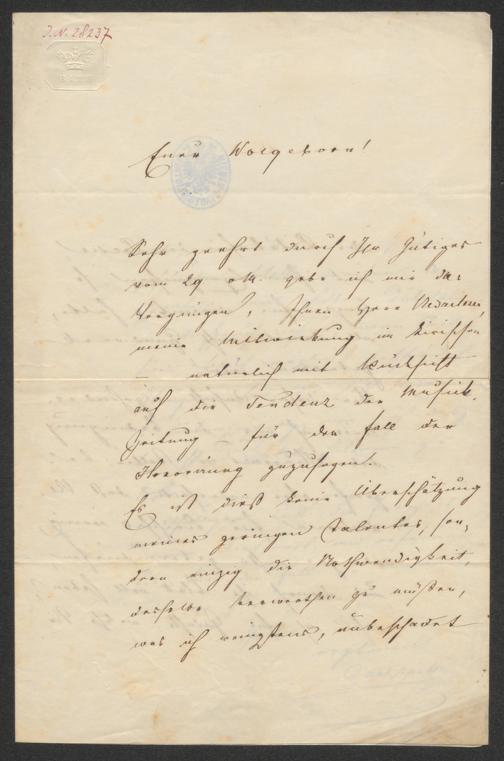 J.N. 28237
Euer Wolgeboren!
Sehr geehrt durch Ihr Gütiges
vom 29 v.M. gebe ich mir das
Vergnügen, Ihnen Herr Redacteur,
meine Mitwirkung im kritischen
– natürlich mit Rücksicht
auf die Tendenz der Musik-
Zeitung – für den Fall der
Honorirung zuzusagen.
Es ist dieß keine Überschätzung
meines geringen Talentes, son-
dern einzig die Nothwendigkeit,
dasselbe verwerthen zu müßen,
was ich wenigstens, unbeschadet